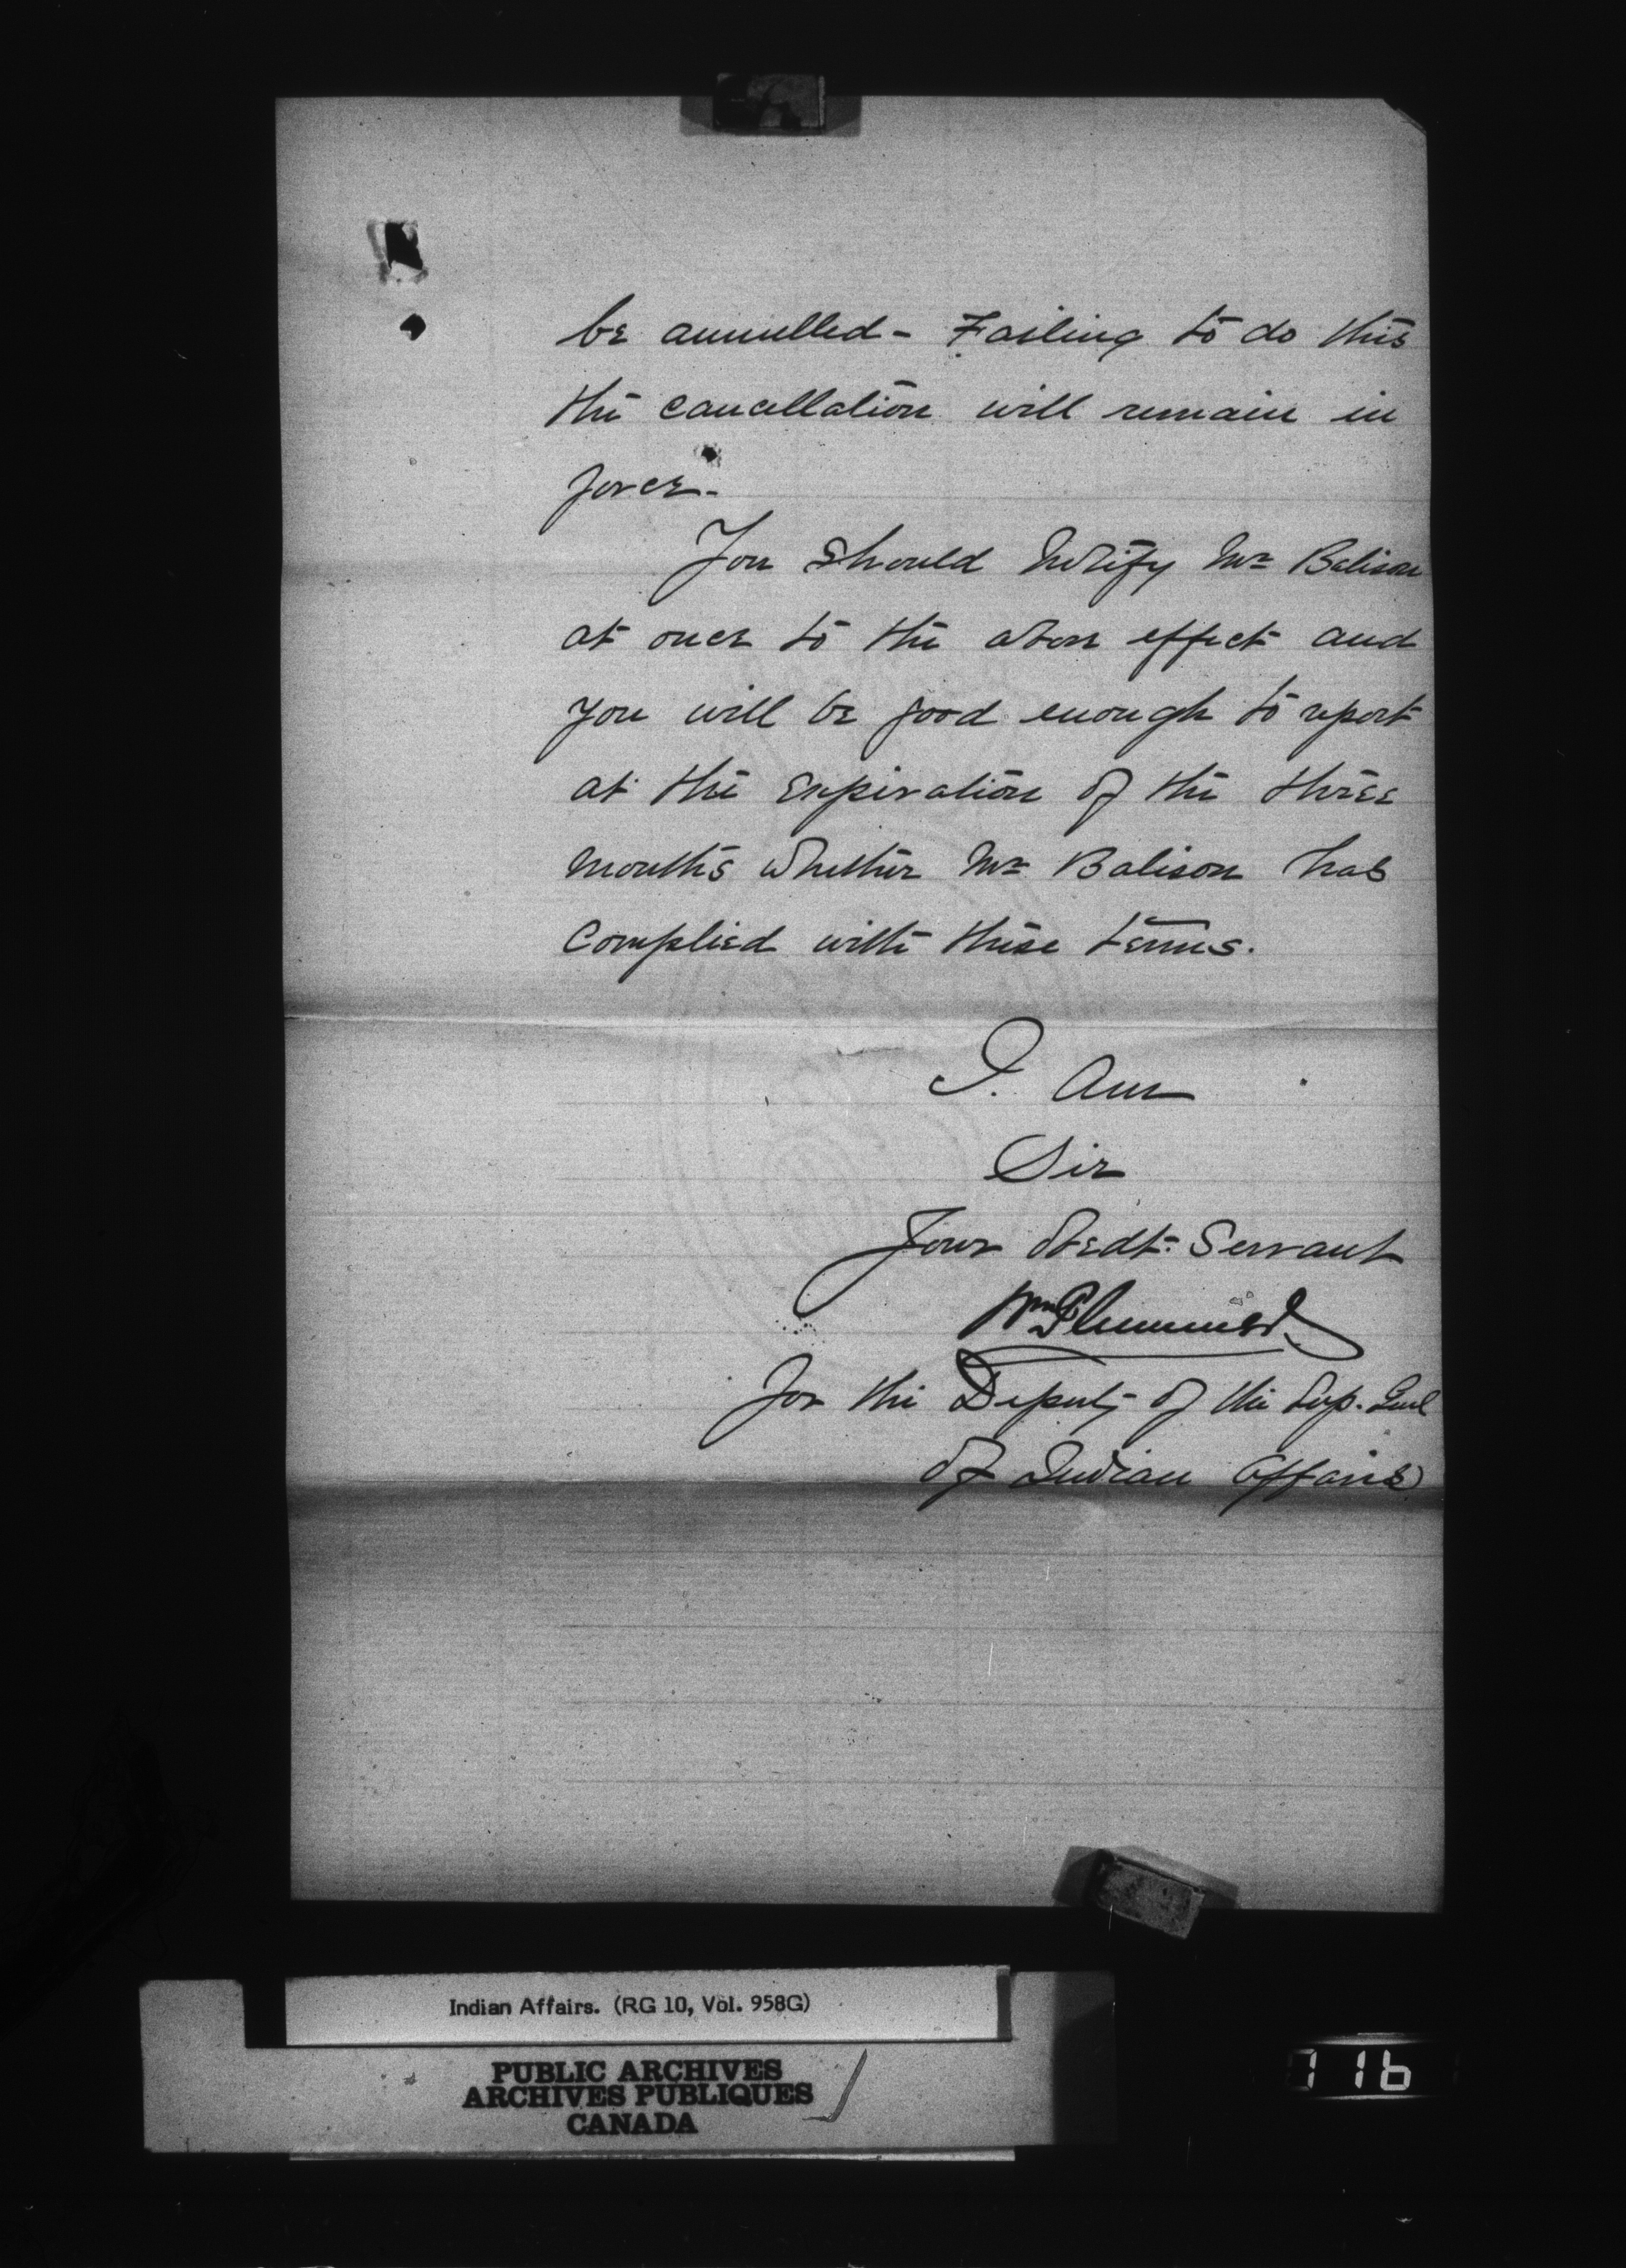 be annulled - Failing to do this
the cancellation will remain in
force -
You should notify Mr Balison
at once to the above effect and
you will be good enough to report
at the expiration of the three
months whether Mr Balison has
complied with these terms.
I. am
Sir
Your Obedt. Servant
Wm Plummer
for the Deputy of the Sup. Genl
of Indian Affairs
Indian Affairs. (RG 10, Vol. 958G)
PUBLIC ARCHIVES
ARCHIVES PUBLIQUES
CANADA
116